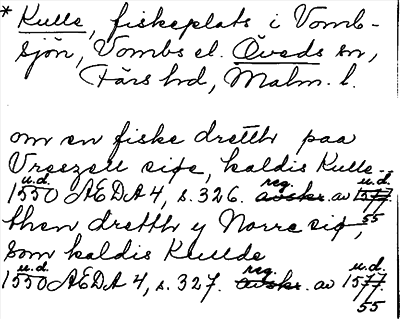 * Kulle, fiskeplats i Vomb-
sjön, Vombs el. Öveds sn,
Färs hd, Malm. l.
om en fiske dretthr paa
Vreezell siøe, kaldis Kulle.
u.d. reg. u.d.
1550 AEDA 4, s. 326. avskr. av 1577
55
then dretthr y Norre siø,
som kaldis Kullde
u.d. reg. u.d.
1550 AEDA 4, s. 327. avskr. av 1577.
55